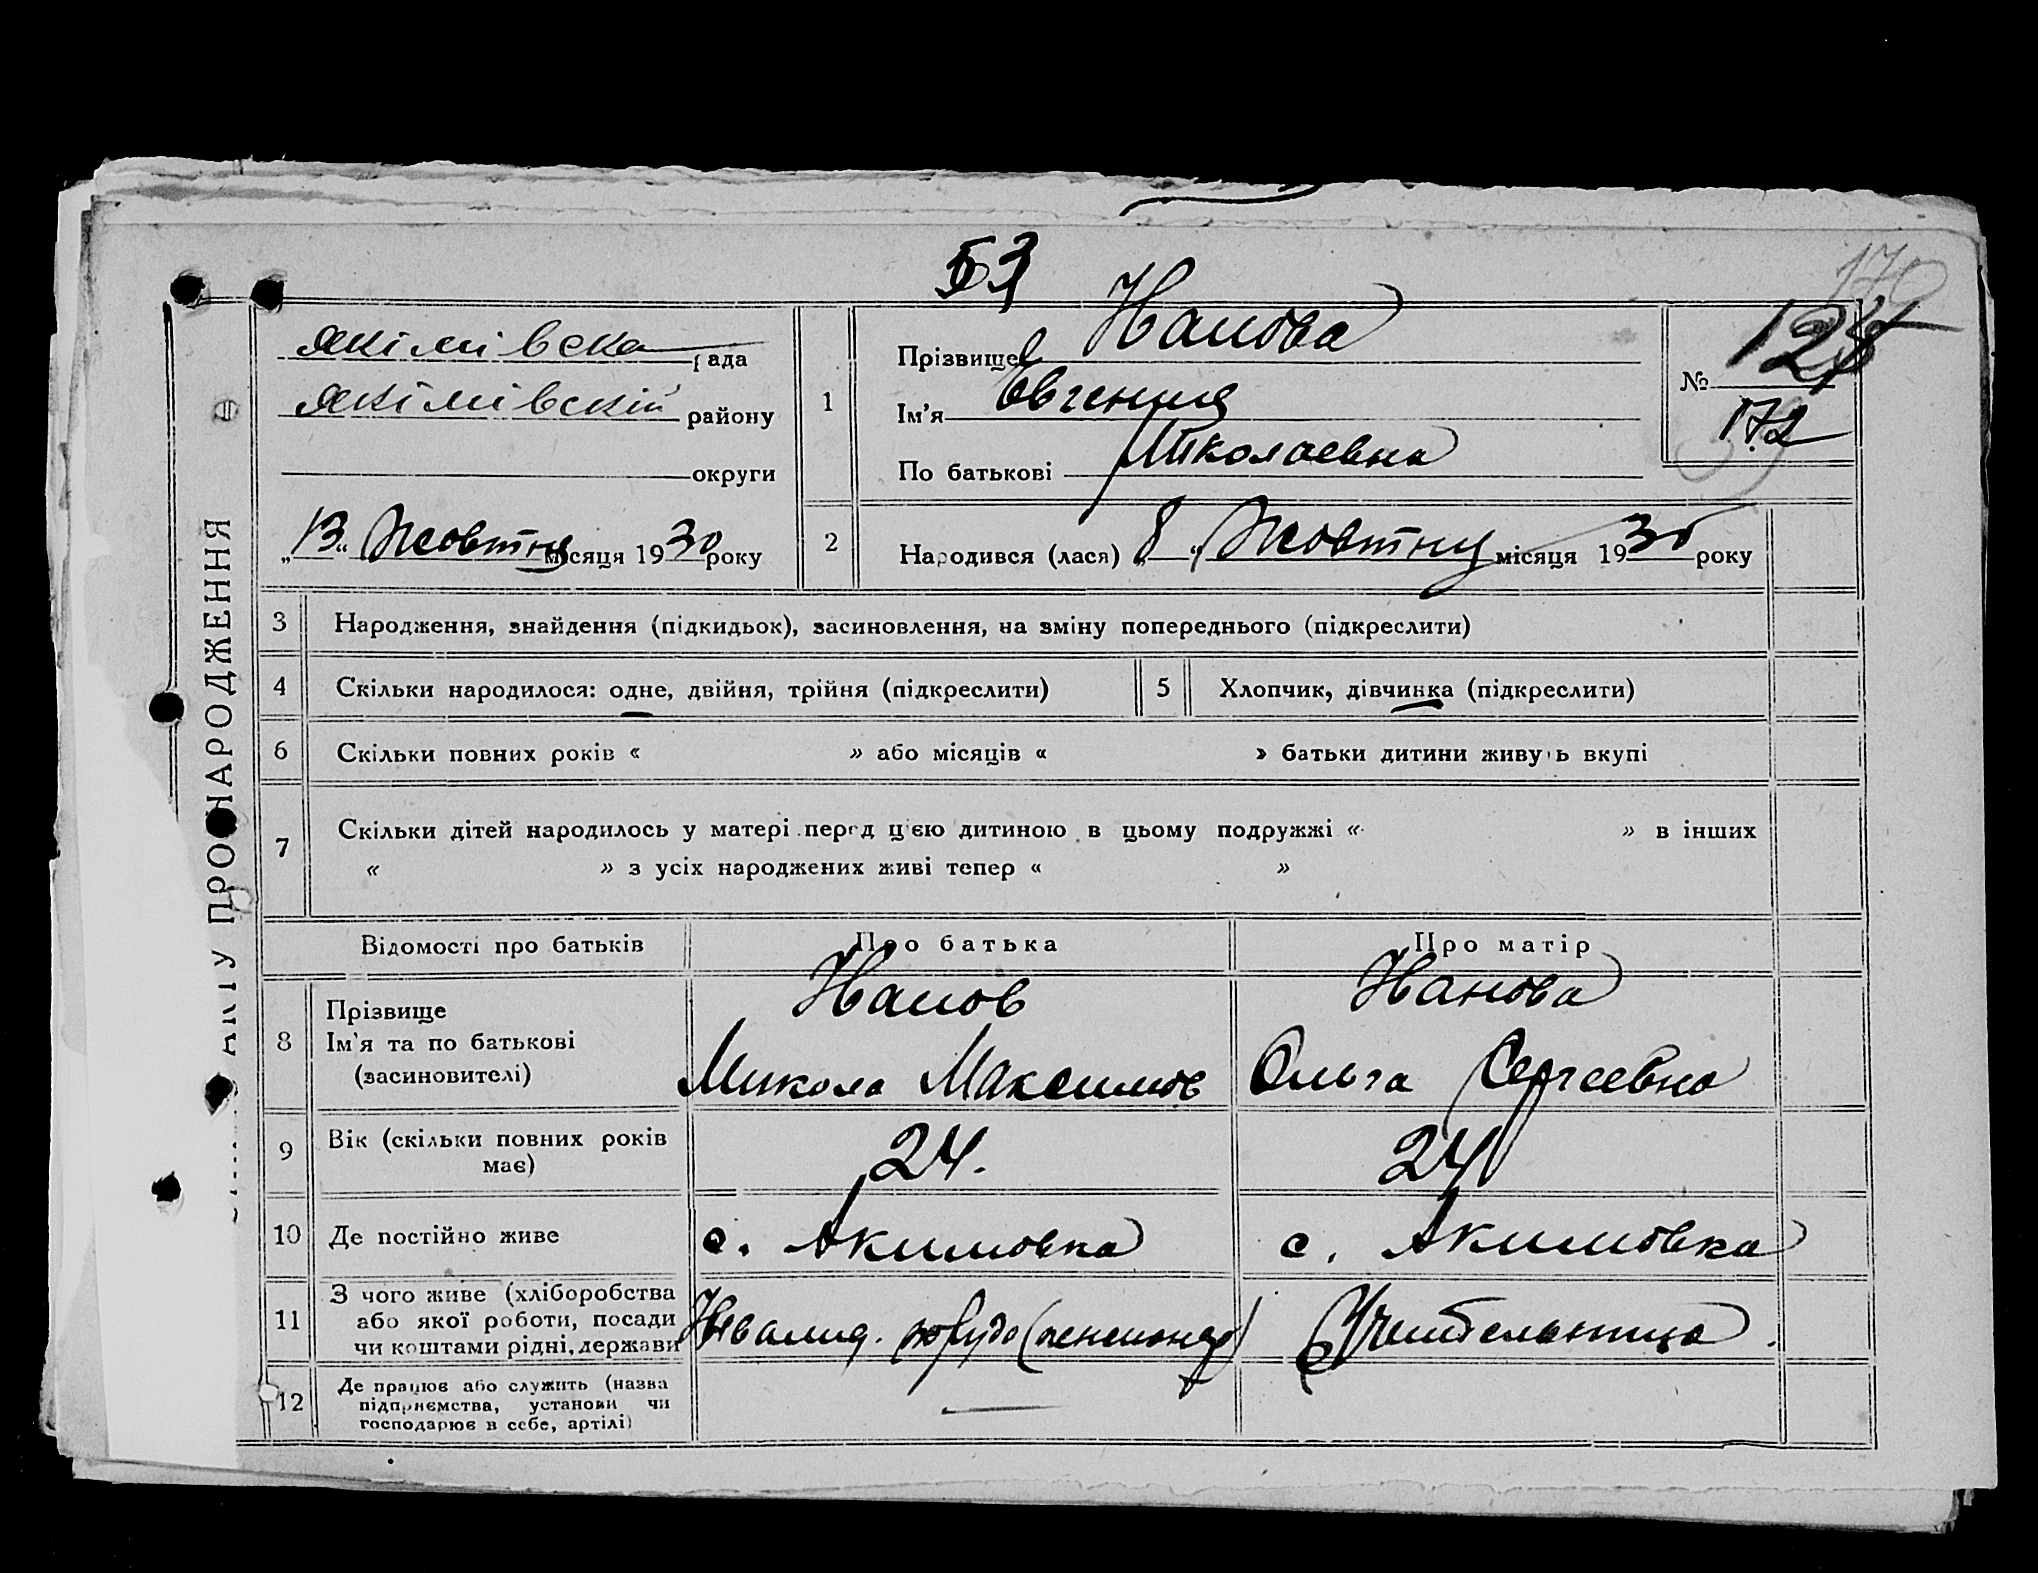 53
170
Якімівска рада
Якімівскій району
округи
„13" Жовтня місяця 1930 року
1
Прізвище Нанова
Ім'я Евгения
По батькові Миколаевна
№ 128
172
2
Народився (лася) „8" Жовтня місяця 1930 року
СПИС АКТУ ПРО НАРОДЖЕННЯ
3 Народження, знайдення (підкидьок), засиновлення, на зміну попереднього (підкреслити)
4 Скільки народилося: одне, двійня, трійня (підкреслити) 5 Хлопчик, дівчинка (підкреслити)
6 Скільки повних років « » або місяців « » батьки дитини живуть вкупі
7 Скільки дітей народилось у матері перед цією дитиною в цьому подружжі « » в інших
« » з усіх народжених живі тепер « »
Відомості про батьків Про батька Про матір
8 Прізвище
Ім'я та по батькові
(засиновителі)
Нанов
Микола Максимов
Нанова
Ольга Сергеевна
9 Вік (скільки повних років
має)
24.
24
10 Де постійно живе с. Акимовка с. Акимовка
11 З чого живе (хліборобства
або якої роботи, посади
чи коштами рідні, держави
Инвалид. (пенсионер)
Учительница.
12 Де працює або служить (назва
підприємства, установи чи
господарює в себе, артілі)
—